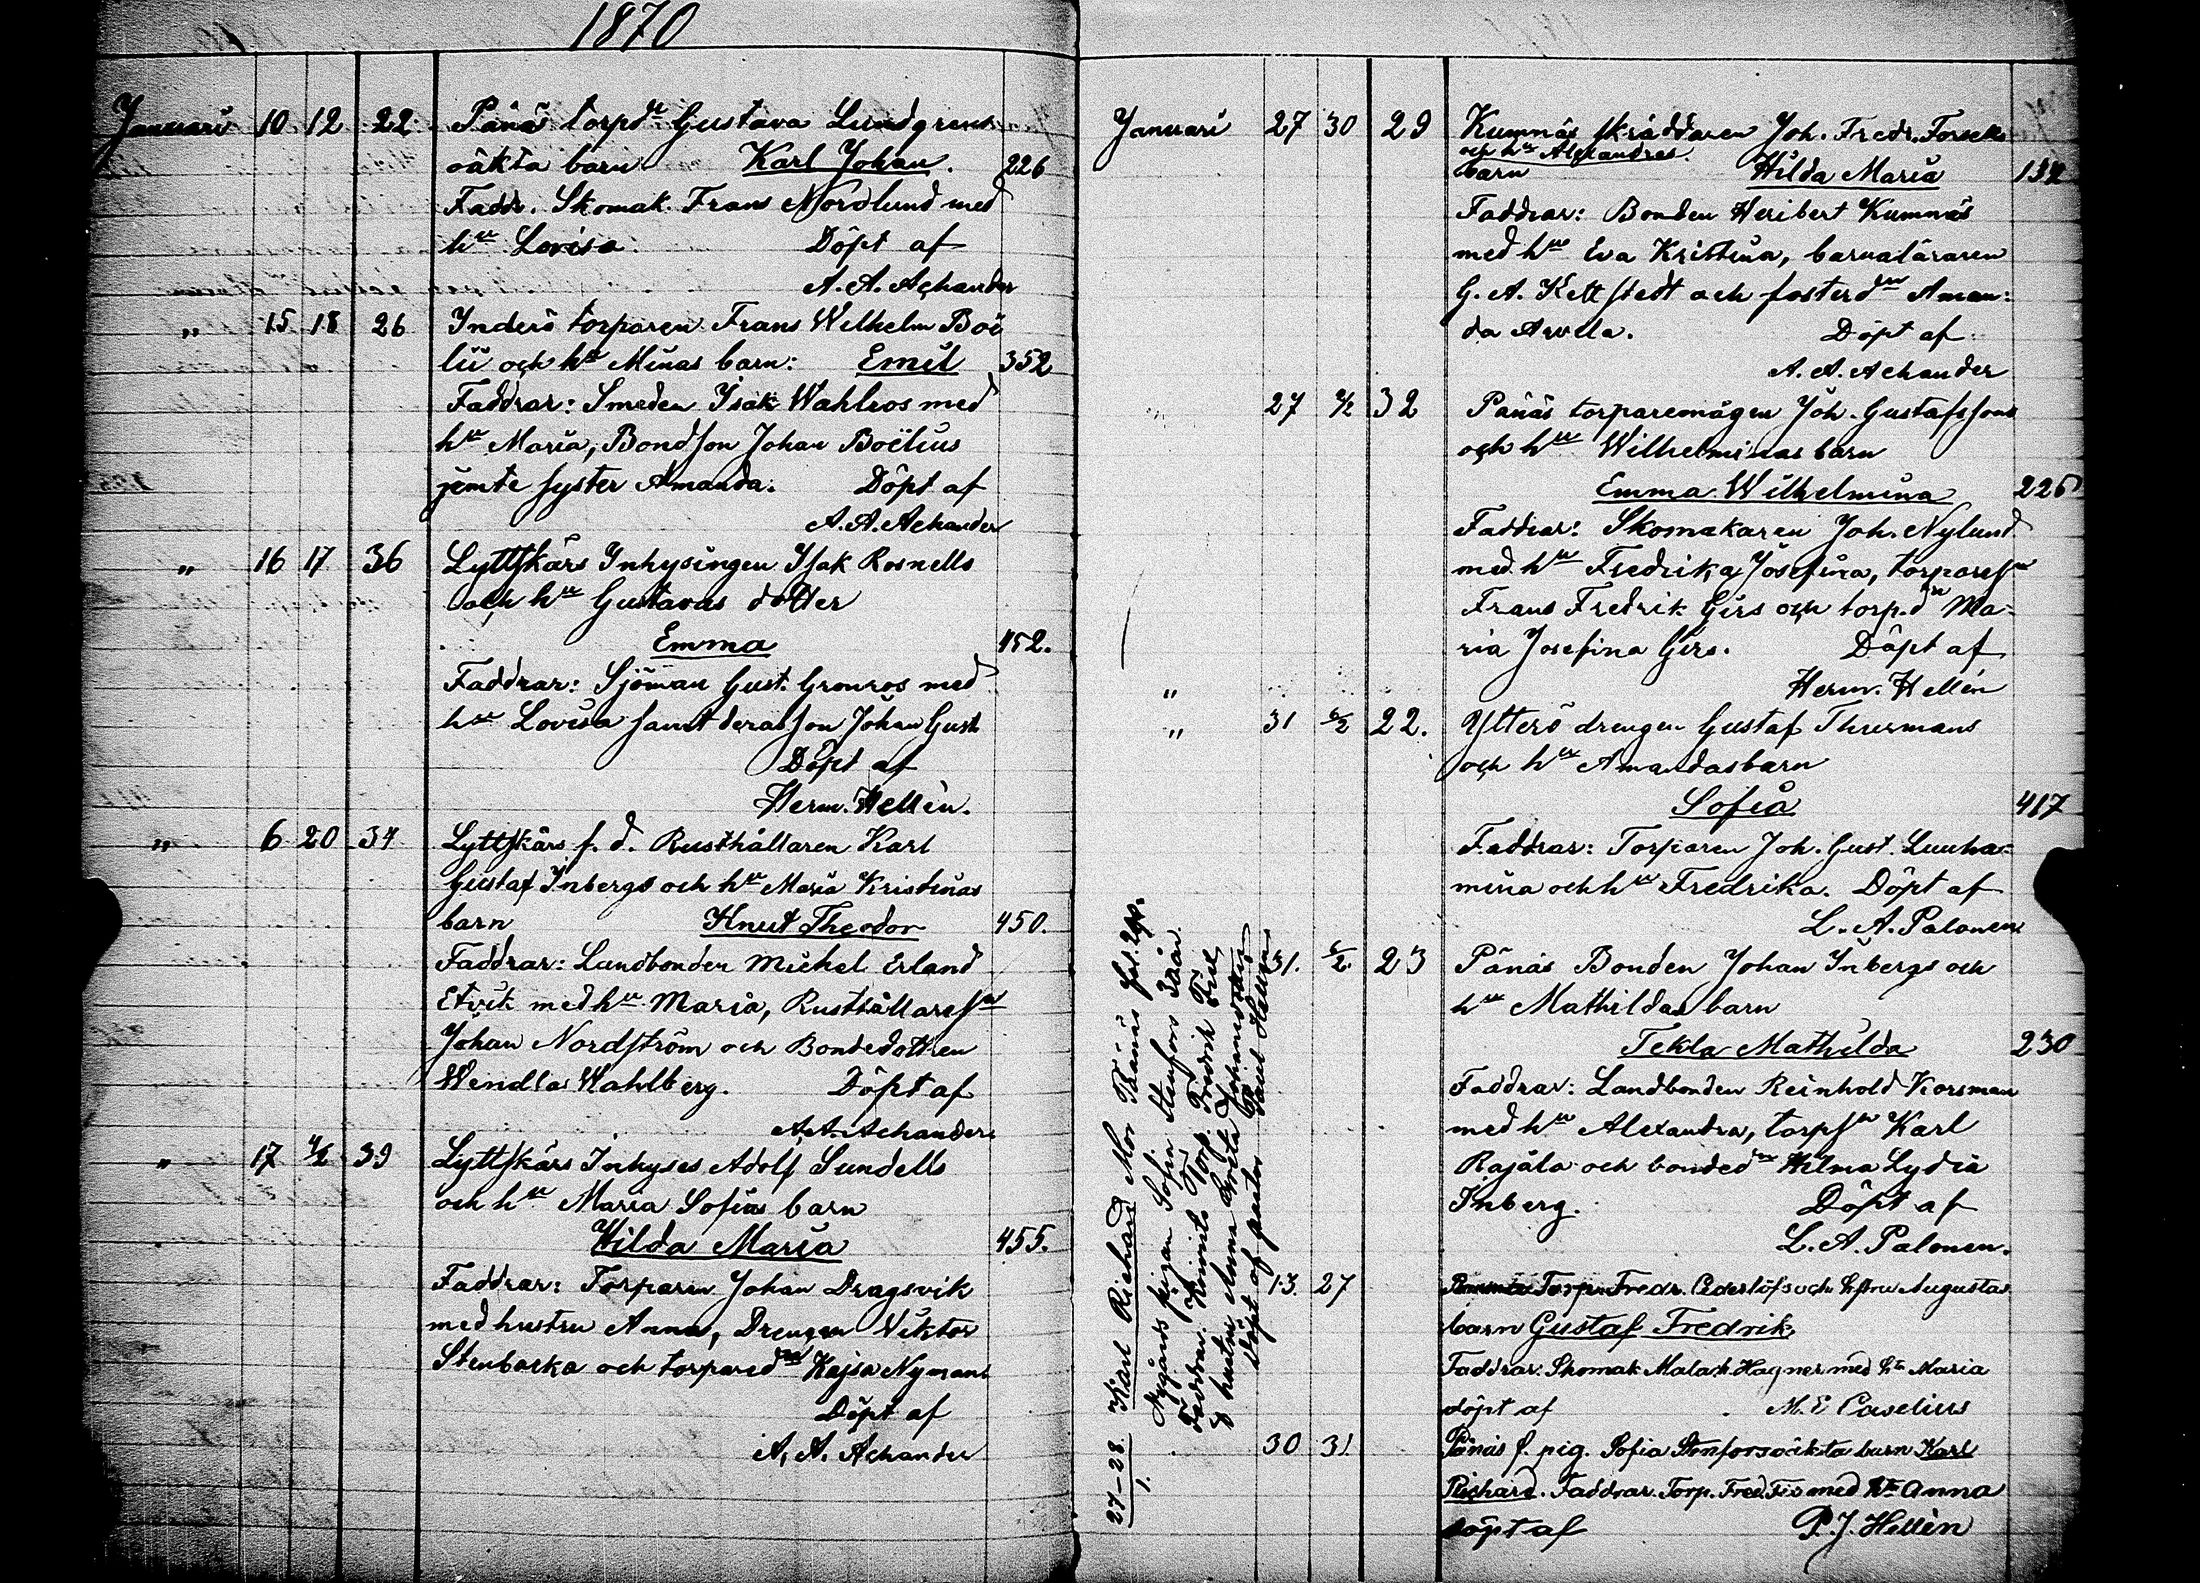 1870
Januari 10 12 22 Pånäs torpd. Gustava Lundgrens
oäkta barn Karl Johan. 226
Faddr. Skomak. Frans Nordlund med
hu Lovisa Döpt af
A. A. Achander
" 15 18 26 Inderö torparen Frans Wilhelm Boë
lii och hu Minas barn: Emil 352
Faddrar: Smeden Isak Wahlros med
hu Maria, Bondson Johan Boëlius
jemte syster Amanda. Döpt af
A. A. Achander
" 16 17 36 Lyttskärs Inhysingen Isak Rosnells
och hu Gustavas dotter
Emma 452.
Faddrar: Sjöman Gust. Gronros med
hu Lovisa samt deras son Johan Gust
Döpt af
Herm. Hellén.
" 6 20 34 Lyttskärs f. d. Rusthållaren Karl
Gustaf Inbergs och hu Maria Kristinas
barn Knut Theodor 450.
Faddrar: Landbonden Michel Erland
Etvik med hu Maria, Rusthållaresn
Johan Nordström och Bondedottren
Wendla Wahlberg. Döpt af
A. A. Achander
" 17 4/2 39 Lyttskärs Inhyses Adolf Sundells
och hu Maria Sofias barn
Hilda Maria 455.
Faddrar: Torparen Johan Dragsvik
med hustru Anna, Drengen Viktor
Stenbacka och torpared Kajsa Nyman
Döpt af
A. A. Achander
Januari 27 30 29 Kumnäs skräddaren Joh. Fredr. Forsells
och hu Alexandras
barn Hilda Maria 134
Faddrar: Bonden Heribert Kumnäs
med hu Eva Kristina, barnaläraren
G. A. Kettstedt och fosterd Aman:
da Arvela. Döpt af
A. A. Achander
" 27 2/2 32 Pånäs torparemågen Joh. Gustafssons
och hu Wilhelminas barn
Emma Wilhelmina 226
Faddrar: Skomakaren Joh. Nylund
med hu Fredrika Josefina, torparesn
Frans Fredrik Girs och torp.d Ma-
ria Josefina Girs. Döpt af
" Herm. Hellén
" 31 6/2 22. Ytterö drengen Gustaf Thurmans
och hu Amandas barn
Sofia 417
Faddrar: Torparen Joh. Gust. Luuha-
mina och hu Fredrika. Döpt af
L. A. Palonen.
31. 6/2. 23 Pånäs Bonden Johan Inbergs och
hu Mathildas barn
Tekla Mathilda 230
Faddrar: Landbonden Reinhold Korsman
med hu Alexandra, torpsn Karl
Rajala och bonded Hilma Lydia
Inberg. Döpt af
L. A. Palonen.
13. 27 Torpn Fredr. Cederlöfs och hustru Augustas
barn Gustaf Fredrik
Faddrar. Skomak Malak. Hagner med hu Maria
döpt af M. E. Caselius
30 31. Pånäs f. pig. Sofia Stenfors oäkta barn Karl
Richard. Faddrar. Torp. Fred. Fis med hu Anna
döpt af P. J. Hellén
27-28/1. Karl Richard Mor Pånäs
Nygårds pigan Sofia Stenfors
Faddrar: Torp. Fredrik
& hustru Anna Greta Johansdotter
Döpt af pastor Paul Hellén